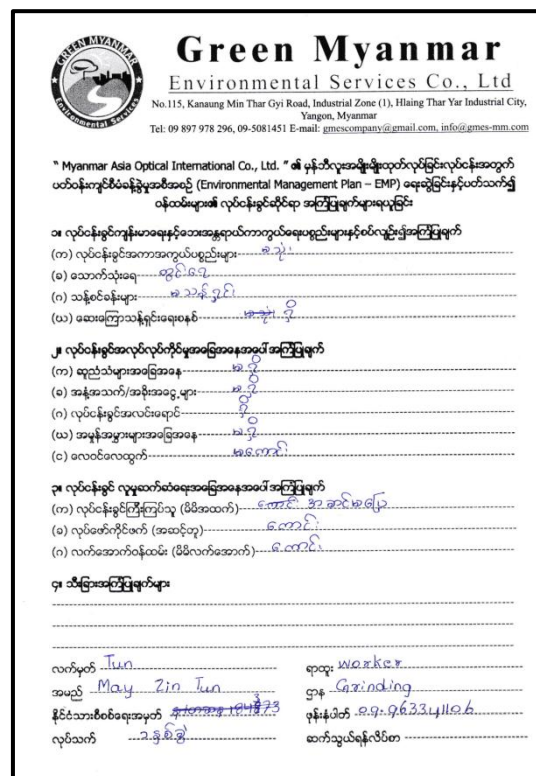 GREEN MYANMAR
Environmental Services
Green Myanmar
Environmental Services Co., Ltd
No.115, Kanaung Min Thar Gyi Road, Industrial Zone (1), Hlaing Thar Yar Industrial City,
Yangon, Myanmar
Tel: 09 897 978 296, 09-5081451 E-mail: gmescompany@gmail.com, info@gmes-mm.com
“ Myanmar Asia Optical International Co., Ltd. ” ၏ မှန်ဘီလူးအမျိုးမျိုးထုတ်လုပ်ခြင်းလုပ်ငန်းအတွက်
ပတ်ဝန်းကျင်စီမံခန့်ခွဲမှုအစီအစဉ် (Environmental Management Plan – EMP) ရေးဆွဲခြင်းနှင့်ပတ်သက်၍
ဝန်ထမ်းများ၏ လုပ်ငန်းခွင်ဆိုင်ရာ အကြံပြုချက်များရယူခြင်း
၁။ လုပ်ငန်းခွင်ကျန်းမာရေးနှင့်ဘေးအန္တရာယ်ကာကွယ်ရေးပစ္စည်းများနှင့်စပ်လျဉ်း၍အကြံပြုချက်
(က) လုပ်ငန်းခွင်အကာအကွယ်ပစ္စည်းများ မသုံး
(ခ) သောက်သုံးရေ တွင်းရေ
(ဂ) သန့်စင်ခန်းများ မသန့်ရှင်း
(ဃ) ဆေးကြောသန့်ရှင်းရေးစနစ် ရှိ
၂။ လုပ်ငန်းခွင်အလုပ်လုပ်ကိုင်မှုအခြေအနေအပေါ် အကြံပြုချက်
(က) ဆူညံသံများအခြေအနေ မရှိ
(ခ) အနံ့အသက်/အခိုးအငွေ့များ မရှိ
(ဂ) လုပ်ငန်းခွင်အလင်းရောင် ရှိ
(ဃ) အမှုန်အမွှားများအခြေအနေ မရှိ
(င) လေဝင်လေထွက် မကောင်း
၃။ လုပ်ငန်းခွင် လူမှုဆက်ဆံရေးအခြေအနေအပေါ် အကြံပြုချက်
(က) လုပ်ငန်းခွင်ကြီးကြပ်သူ (မိမိအထက်) အဆင်မပြေ
(ခ) လုပ်ဖော်ကိုင်ဖက် (အဆင့်တူ) ကောင်း
(ဂ) လက်အောက်ဝန်ထမ်း (မိမိလက်အောက်) ကောင်း
၄။ သီးခြားအကြံပြုချက်များ
လက်မှတ် Tun
ရာထူး worker
အမည် May Zin Tun
ဌာန Grinding
နိုင်ငံသားစိစစ်ရေးအမှတ်
ဖုန်းနံပါတ် 09.963341106
လုပ်သက် ၁နှစ်ခွဲ
ဆက်သွယ်ရန်လိပ်စာ